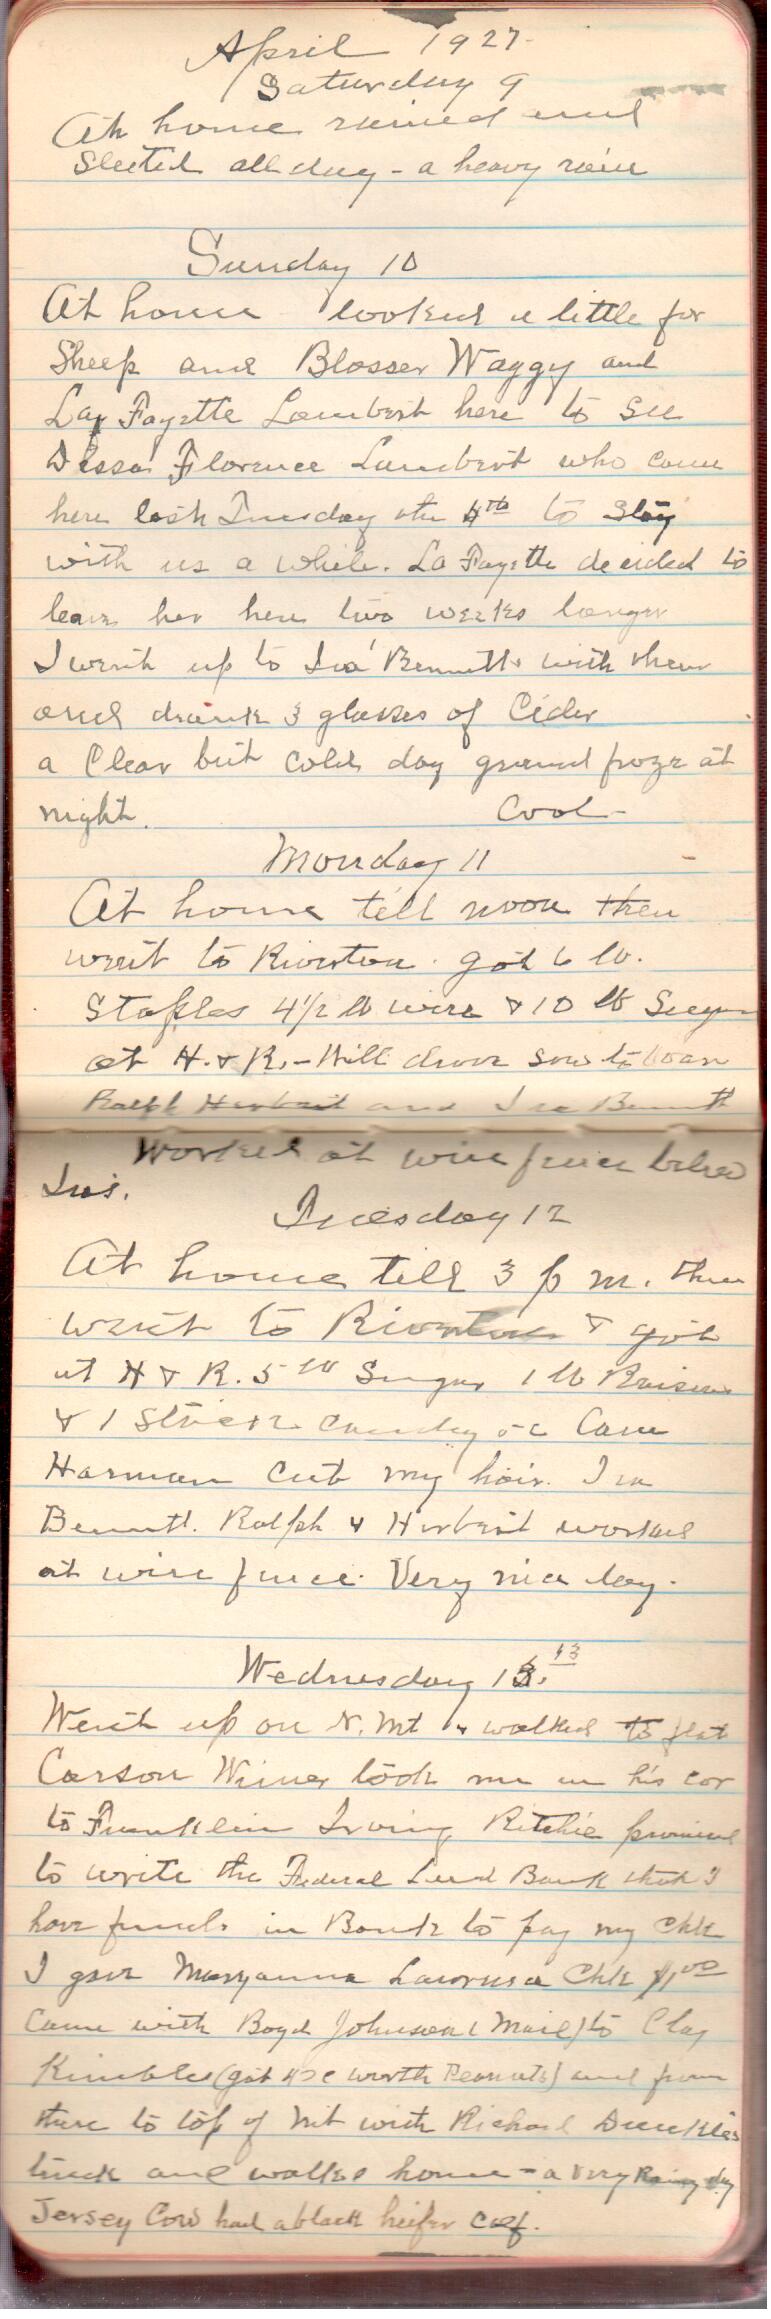 April 1927-
Saturday 9
At home rained and
Sleeted all day - a heavy rain
Sunday 10
At home looked a little for
Sheep and Blosser Waggy and
La Fayette Lambert here to See
Dessa Florence Lambert who came
here last Tuesday the 4th to Stay
with us a while. La Fayette decided to
leave her here two weeks longer
I went up to Ira Bennetts with them
and drank 3 glasses of Cider
a Clear but cold day ground froze at
night. Cool-
Monday 11
At home till noon then
went to Riverton. got 6 lb.
Staples 4 1/2 lb wire & 10 lb Sugar
at H. & R. - Will drove sow to boar
Ralph Herbert and Ira Bennett
Worked at wire fence below
Ira's.
Tuesday 12
At home till 3 p m. then
went to Riverton & got
at H & R. 5 lb Sugar 1 lb Raisins
& 1 Stick candy 5c
Harman Cut my hair. Ira
Bennett. Ralph & Herbert worked
at wire fence. Very nice day.
Wednesday 13. 13
Went up on N. Mt & walked to flat
Carson Wimer took me in his car
to Franklin Irving Ritchie promised
to write the Federal Land Bank that I
have funds in Bank to pay my Chk
I gave Maryanna a Chk $1 00
Came with Boyd Johnson (Mail) to Clay
Kimbles (got worth Peanuts) and from
there to top of Mt with Richard
truck and walked home - a very Rainy day
Jersey Cow had a black heifer calf.